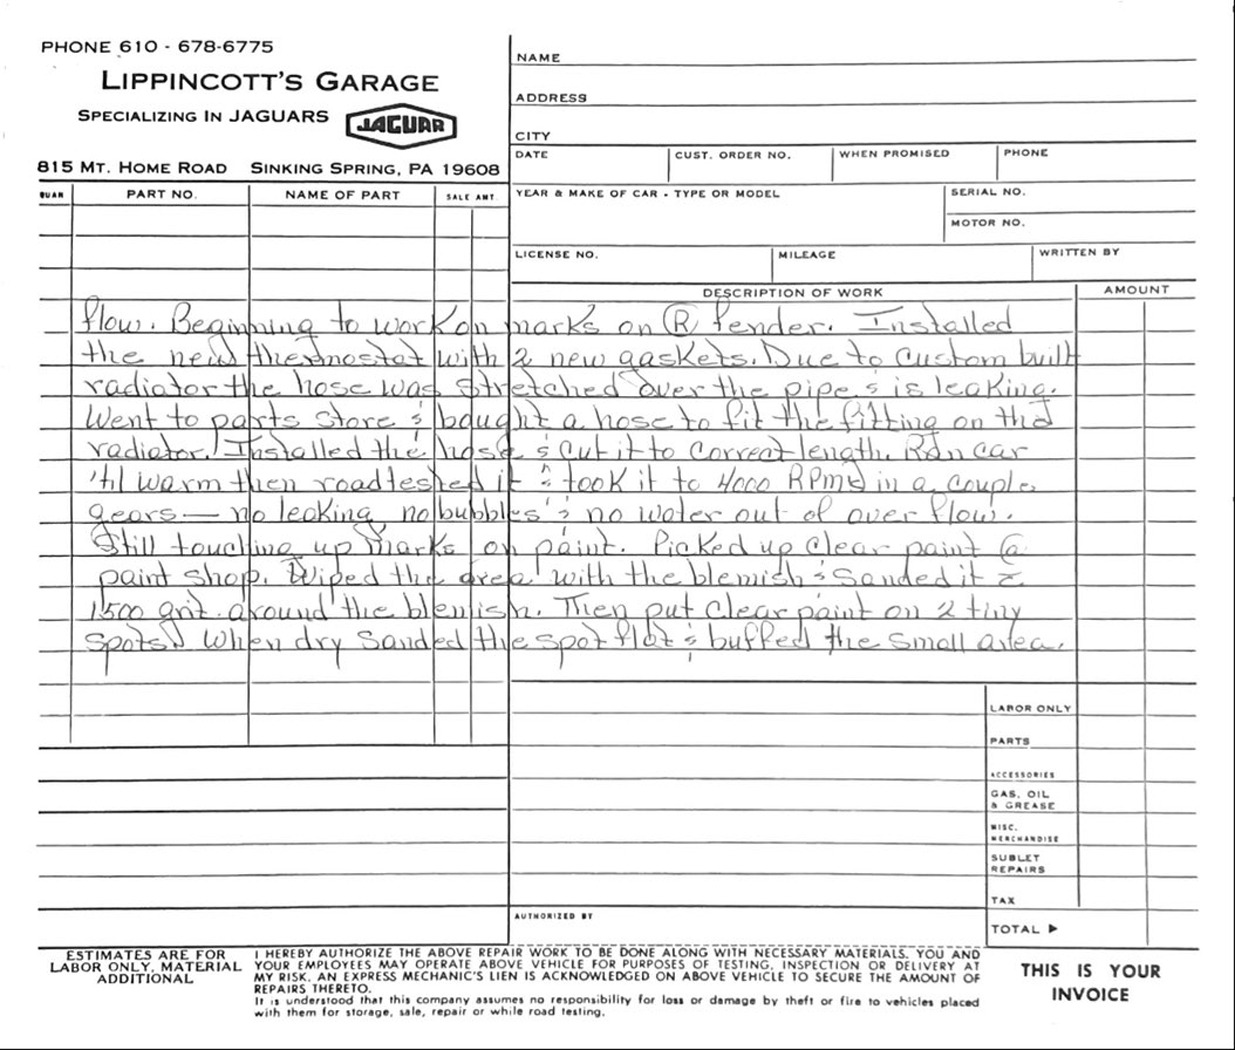 PHONE 610 - 678-6775
LIPPINCOTT'S GARAGE
SPECIALIZING IN JAGUARS
JAGUAR
815 MT. HOME ROAD SINKING SPRING, PA 19608
NAME
ADDRESS
CITY
DATE CUST. ORDER NO. WHEN PROMISED PHONE
YEAR & MAKE OF CAR - TYPE OR MODEL SERIAL NO.
MOTOR NO.
LICENSE NO. MILEAGE WRITTEN BY
QUAN PART NO. NAME OF PART SALE AMT.
DESCRIPTION OF WORK AMOUNT
flow. Beginning to work on marks on Ⓡ fender. Installed
the new thermostat with 2 new gaskets. Due to custom built
radiator the hose was stretched over the pipe & is leaking.
Went to parts store & bought a hose to fit the fitting on the
radiator. Installed the hose & cut it to correct length. Ran car
'til warm then roadtested it & took it to 4000 RPMs in a couple
gears — no leaking, no bubbles & no water out of over flow.
Still touching up marks on paint. Picked up clear paint @
paint shop. Wiped the area with the blemish & sanded it c̄
1500 grit around the blemish. Then put clear paint on 2 tiny
spots. When dry sanded the spot flat & buffed the small area.
LABOR ONLY
PARTS
ACCESSORIES
GAS, OIL
& GREASE
MISC.
MERCHANDISE
SUBLET
REPAIRS
TAX
AUTHORIZED BY
TOTAL ▶
ESTIMATES ARE FOR
LABOR ONLY, MATERIAL
ADDITIONAL
I HEREBY AUTHORIZE THE ABOVE REPAIR WORK TO BE DONE ALONG WITH NECESSARY MATERIALS. YOU AND
YOUR EMPLOYEES MAY OPERATE ABOVE VEHICLE FOR PURPOSES OF TESTING, INSPECTION OR DELIVERY AT
MY RISK. AN EXPRESS MECHANIC'S LIEN IS ACKNOWLEDGED ON ABOVE VEHICLE TO SECURE THE AMOUNT OF
REPAIRS THERETO.
It is understood that this company assumes no responsibility for loss or damage by theft or fire to vehicles placed
with them for storage, sale, repair or while road testing.
THIS IS YOUR
INVOICE